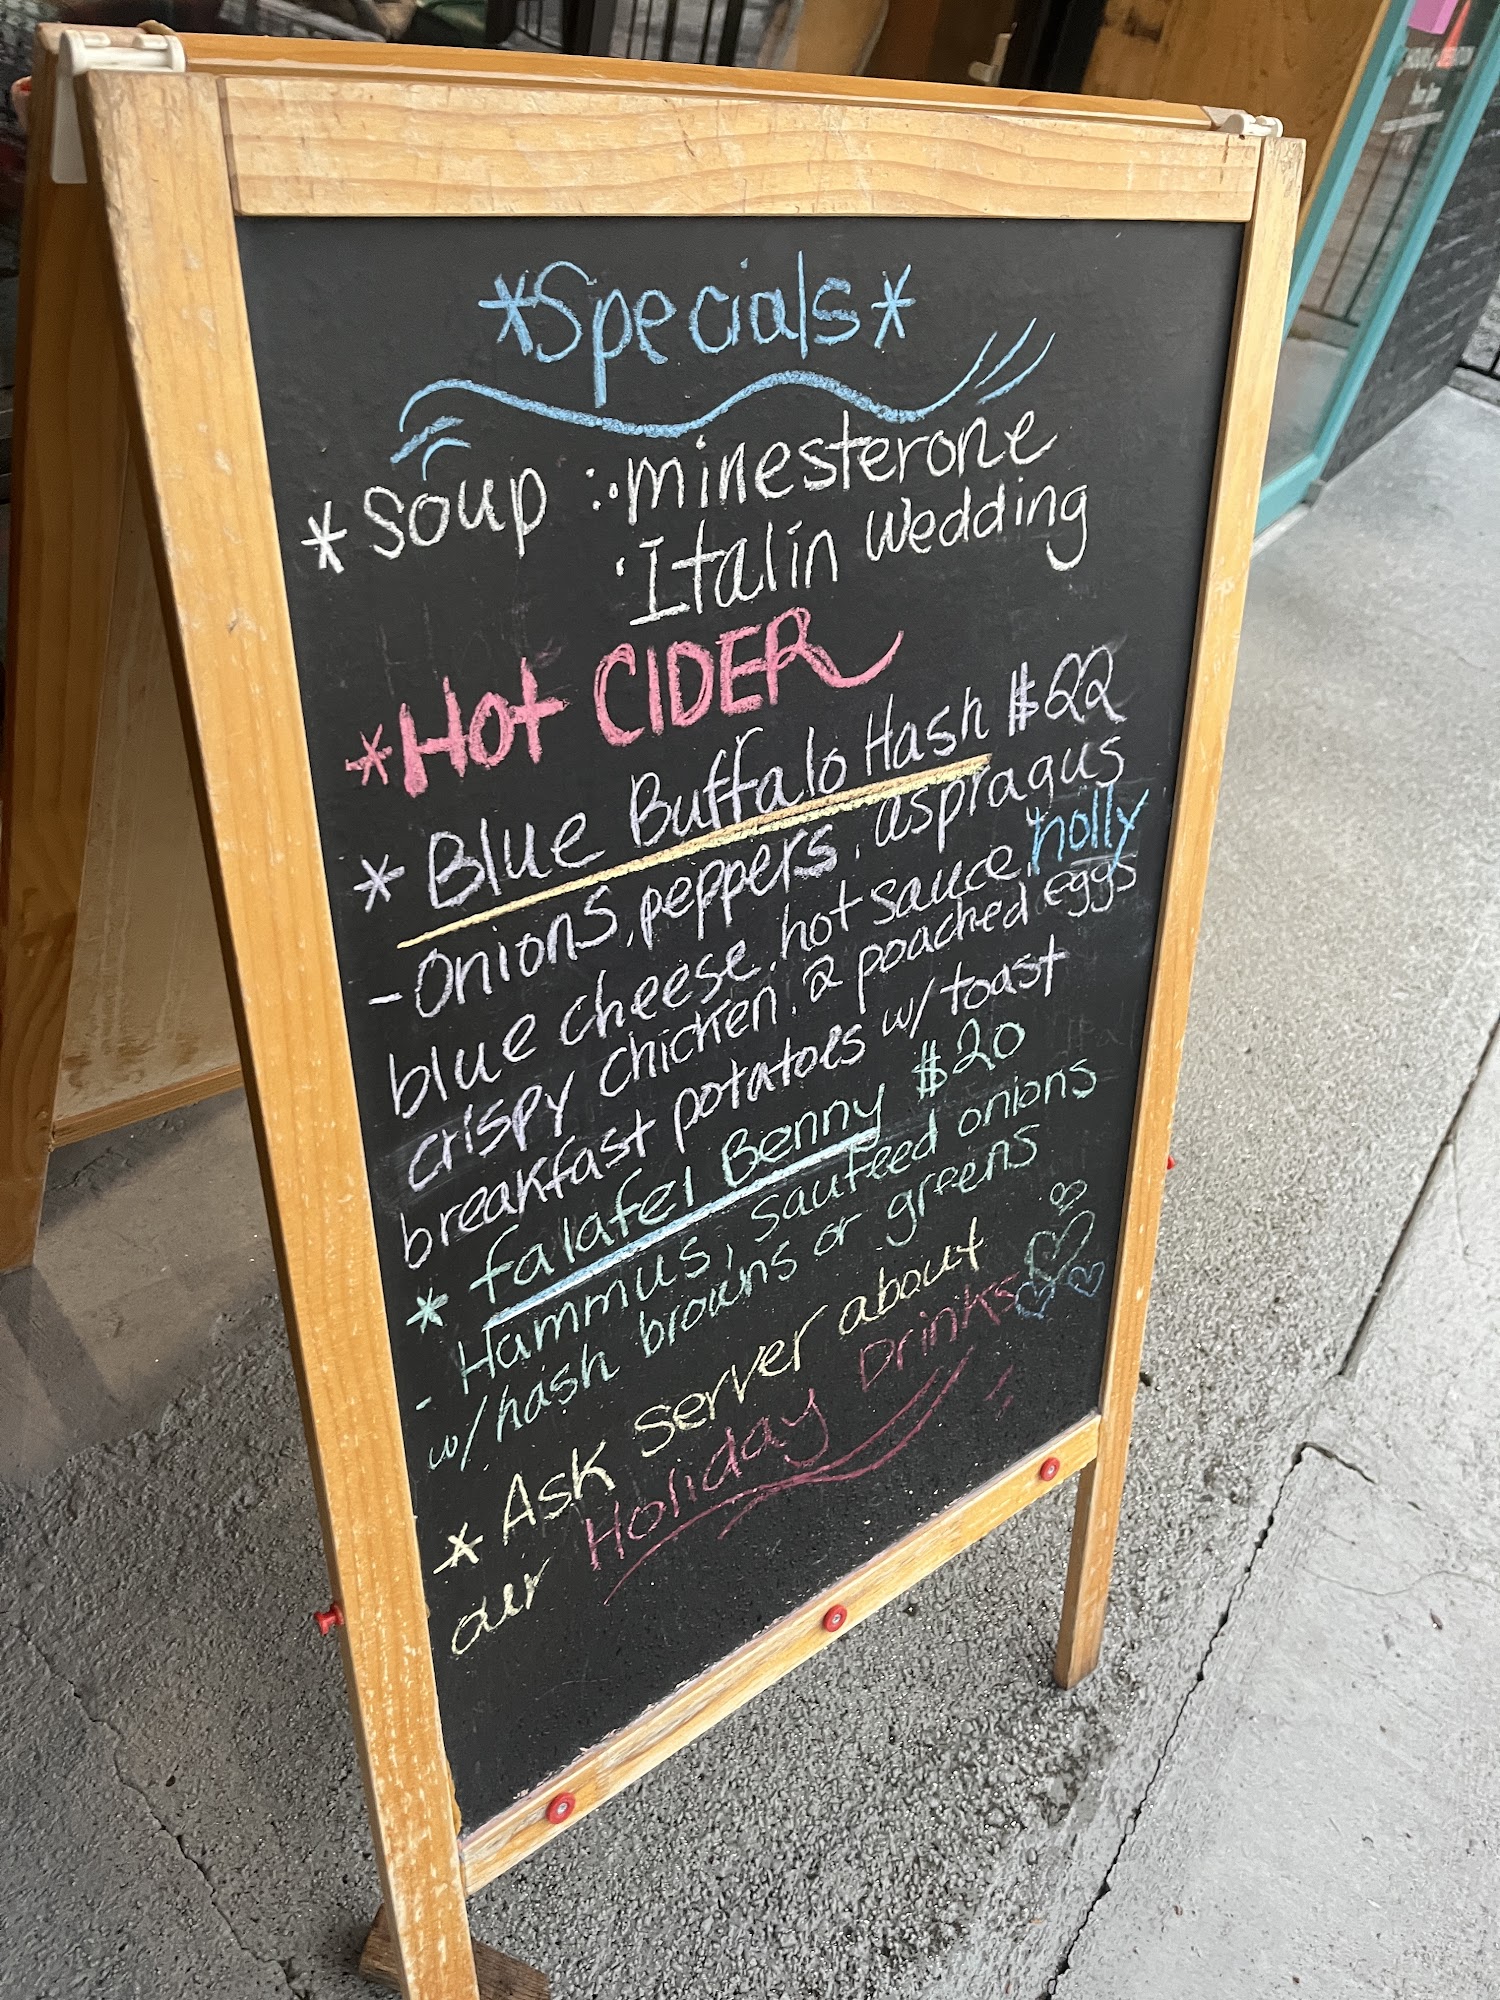 *Specials*
*Soup : minesterone
Italin Wedding
*Hot CIDER
* Blue Buffalo Hash $22
- Onions, peppers, aspragus
blue cheese, hot sauce, holly
crispy chicken, 2 poached eggs
breakfast potatoes w/ toast
* falafel Benny $20
- Hammus, sauteed onions
w/hash browns or greens
* Ask server about
our Holiday Drinks